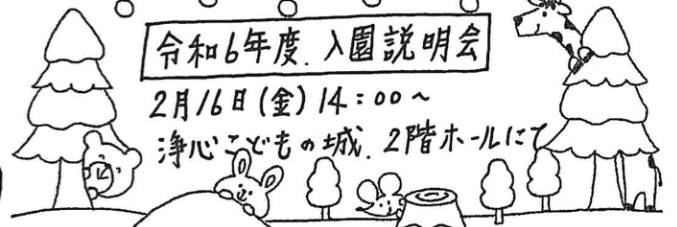 令和6年度.入園説明会
2月16日(金)14:00～
浄心こどもの城.2階ホールにて